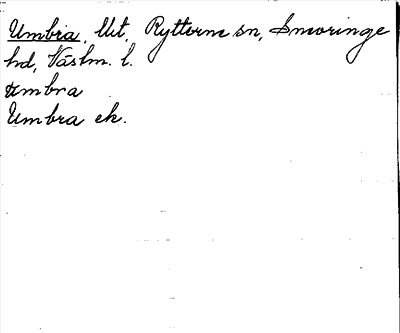 Umbra, Utt, Rytterne sn, Snevringe
hd, Västm. l.
Umbra
Umbra ek.